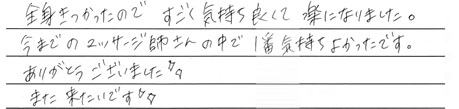 全身きつかったので すごく気持ち良くて 楽になりました。
今までのマッサージ師さんの中で1番気持ちよかったです。
ありがとうございました
また来たいです